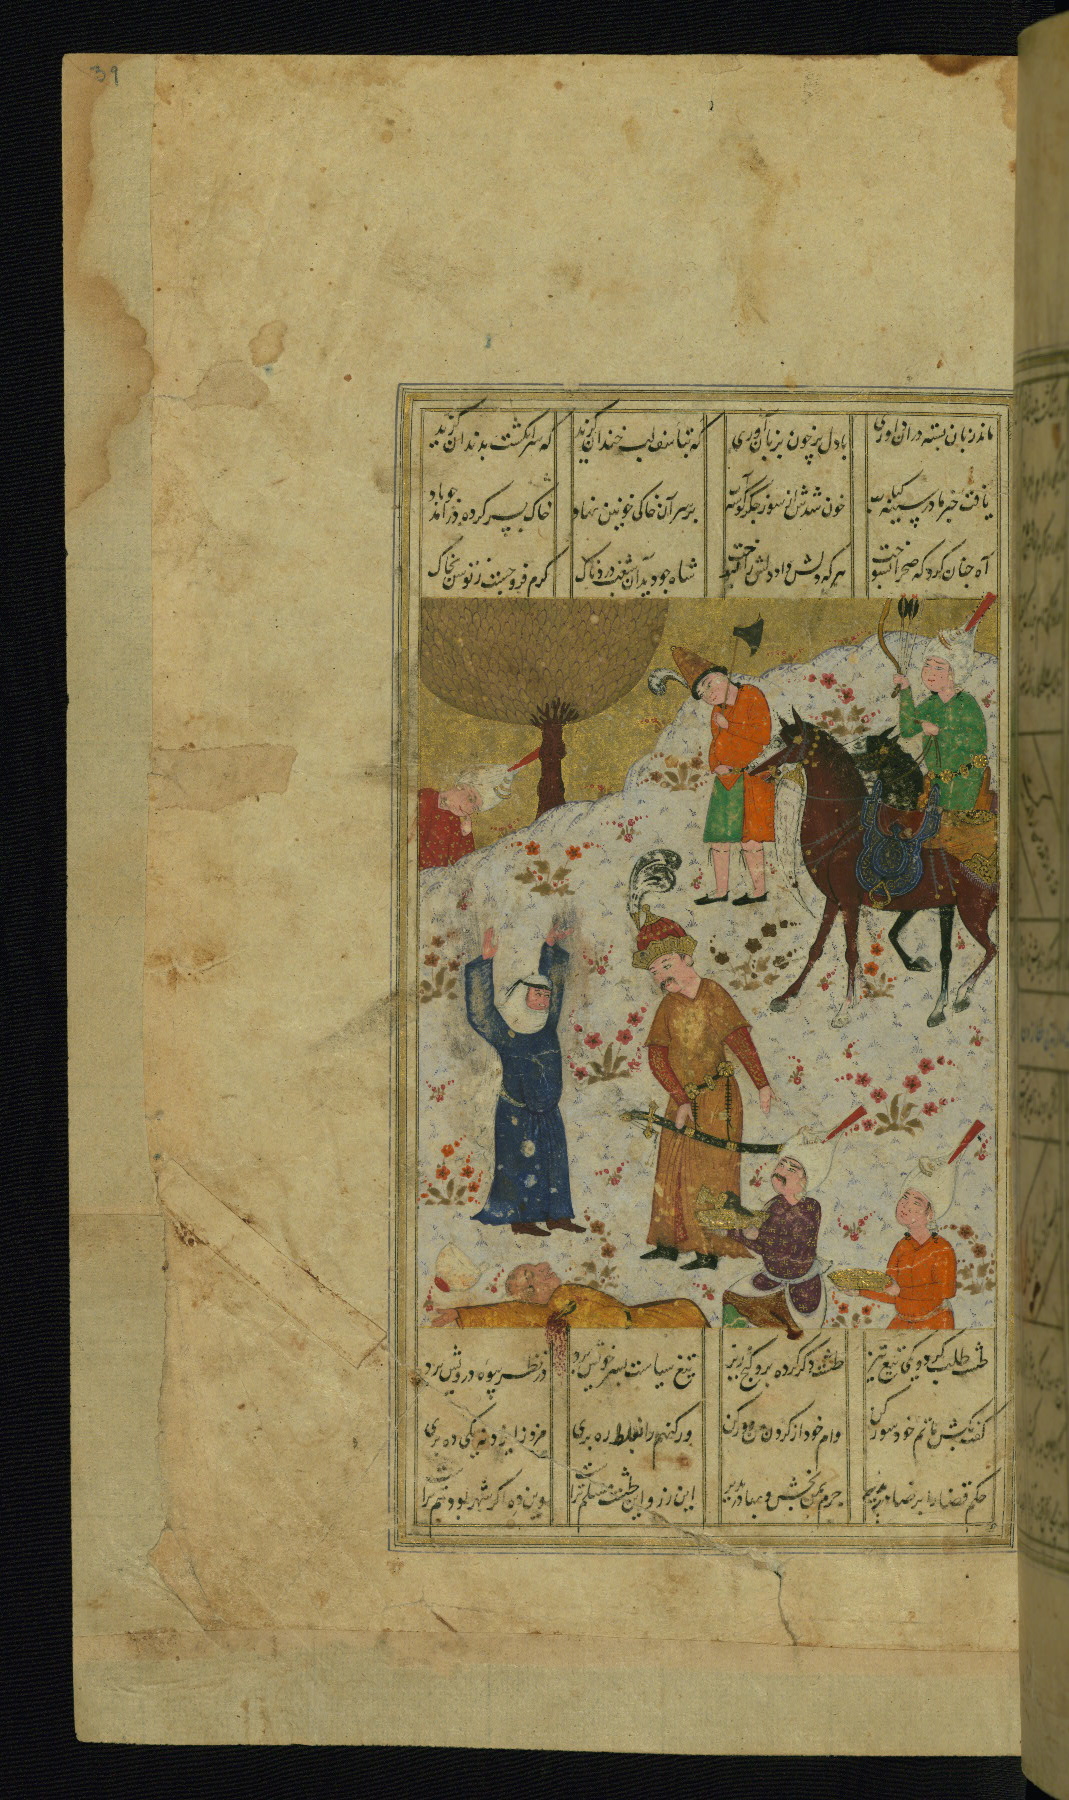 39
ماند زبان بسته در آن داوری با دل پر چون بزبان آوری گه بتأسف لب خندان گزید گه سر انگشت بدندان گزید
یافت خبر مادر خون شدش از سوز جگرگوشه بر سر آن خاکی خونین نهاد خاک بسر کرده در آمد چو باد
آه چنان کرد که صحرا بسوخت هر که دلش داد دلش را بسوخت شاه چو دید آن شغب دردناک گرم فرو جست ز توسن بخاک
طشت طلب کرد و یکی تیغ تیز طشت دگر کرده برو گنج ریز تیغ سیاست بسر خویش برد در نظر بیوه درویش برد
گفت بکش ماتم خود سور کن وام خود از گردن من دور کن ور را بغلط ره بری مزد از ایزد نه یکی ده بری
حکم قضا را برضا در پذیر جرم من بخش و بها در پذیر این زر و این طشت مسلم تراست وین ده اگر شهر بود هم تراست